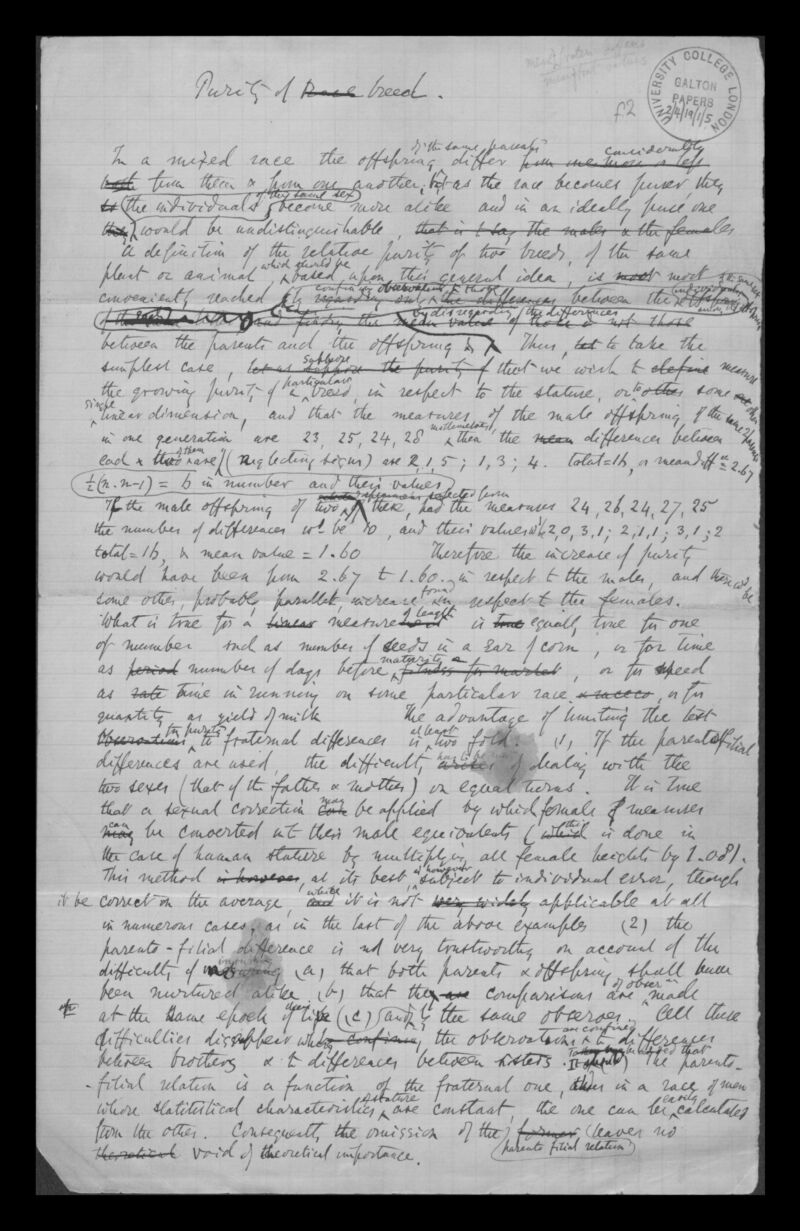 Purity of Race breed.
f2
UNIVERSITY COLLEGE LONDON
GALTON PAPERS
2/4/19/1/5
of the same parents considerably
In a mixed race the offspring differ from one more or less
both from them & from one another, but as the race becomes purer they
of the same sex
the individuals become more alike and in an ideally pure one
they would be undistinguishable, that is to say the males & the females
A definition of the relative purity of two breeds, of the same
which should be
plant or animal, based upon this general idea, is most most
confining observation to those
conveniently reached by regarding only the differences between the offspring
by disregarding the differences
and finding the mean value of those & not those
between the parents and the offspring. Thus, let to take the
suppose
simplest case, let us suppose the purity of that we wish to define measure
particular
the growing purity of a breed, in respect to the stature, or to other some other
single
linear dimension, and that the measures of the male offspring, of the same parents
mathematical
in one generation are 23, 25, 24, 28 then the mean differences between
of them
each & two are (neglecting signs) are 2, 1, 5; 1, 3; 4. total=16, or mean diffce = 2.67
½(n. n-1) = 6 in number and their values
specimens selected from
If the male offspring of two of these, had the measures 24, 26, 24, 27, 25
the number of differences wd be 10, and their values wd 2,0,3,1; 2,1,1; 3,1; 2
total=16, & mean value = 1.60 Therefore the increase of purity
would have been from 2.67 to 1.60. in respect to the males, and there wd be
found
some other, probably parallel, increase in respect to the females.
of length
What is true for a linear measurement is true equally true for one
of number such as number of seeds in a ear of corn, or for time
maturity
as period number of days before fitness for market, or for speed
as rate time in running on some particular race, or for
quantity as yield of milk The advantage of limiting the test
for purity at least
observations to fraternal differences is two fold. (1) If the parento filial
differences are used, the difficulty arises of dealing with the
two sexes (that of the father & mother) on equal terms. It is true
may
that a sexual correction can be applied by which female measures
can this
may be converted into their male equivalents (which is done in
the case of human stature by multiplying all female heights by 1.081.
is however
This method is however, at its best subject to individual error, though
while
it be correct on the average, and it is not very widely applicable at all
in numerous cases, as in the last of the above examples (2) the
parento-filial difference is not very trustworthy on account of the
difficulty of (a) that both parents & offspring shall have
of obserns
been nurtured alike (b) that the are comparisons are made
their
at the same epoch of life (c) and by the same observer. All these
are confined
difficulties disappear when confining the observations to differences
between brothers & to differences between sisters. that the parento-
-filial relation is a function of the fraternal one, thus in a race of men
of stature easily
whose statistical characteristics are constant, the one can be calculated
from the other. Consequently the omission of the former leaves no
parento filial relation
theoretical void of theoretical importance.